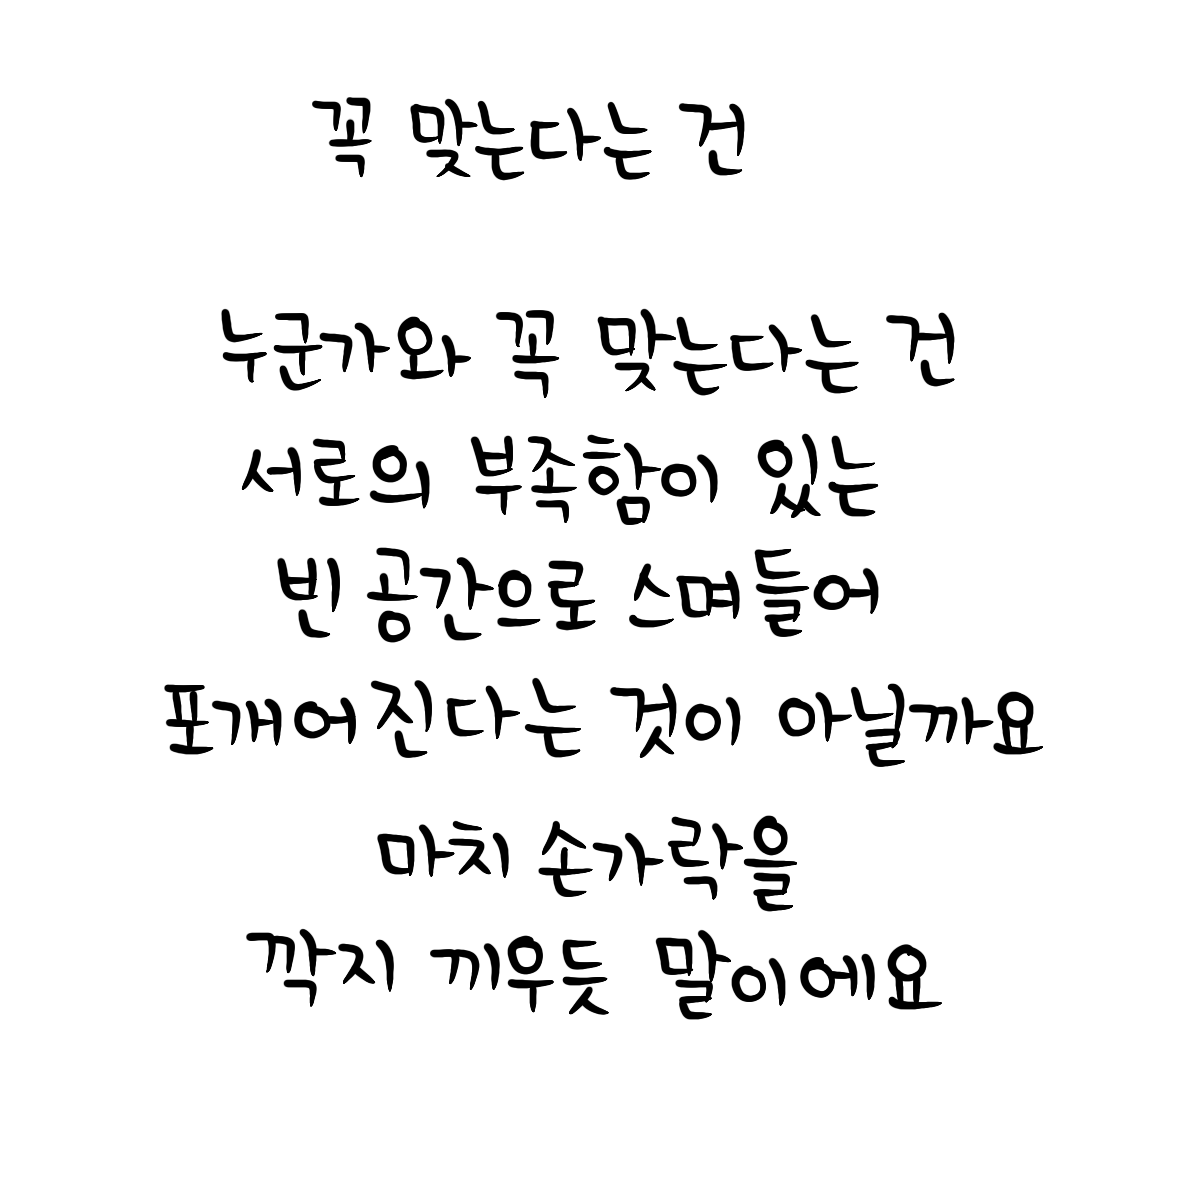 꼭 맞는다는 건
누군가와 꼭 맞는다는 건
서로의 부족함이 있는
빈 공간으로 스며들어
포개어진다는 것이 아닐까요
마치 손가락을
깍지 끼우듯 말이에요